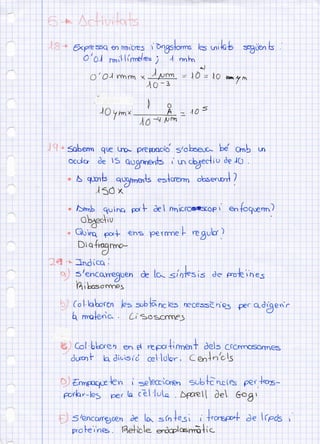 5 → Activitats
18 → Expressa en micres i Angstroms les unitats següents :
0'01 mil·límetres ; 1 mm
0'01 mm x 1 µm / 10⁻³ = 10 = 10 µm
10 µm x 1 Å / 10⁻⁴ µm = 10⁵
19 → Sabem que una preparació s'observa bé amb un
ocular de 15 augments i un objectiu de 10 .
• A quants augments estarem observant?
150x
• Amb quina part del microscopi enfoquem?
Objectiu
• Quina part ens permet regular?
Diafragma
→ Indica :
a) S'encarreguen de la síntesis de proteïnes
Ribosomes
b) Col·laboren les substàncies necessàries per adigerir
la matèria . Lisosomes
c) Col·laboren en el repartiment dels cromosomes
durant la divisió cel·lular. Centríols
D) Empaqueten i seleccionen substàncies per trans-
portar-les per la cèl·lula . Aparell del Golgi
E) S'encarreguen de la síntesi i transport de lípids i
proteïnes . Reticle endoplasmàtic